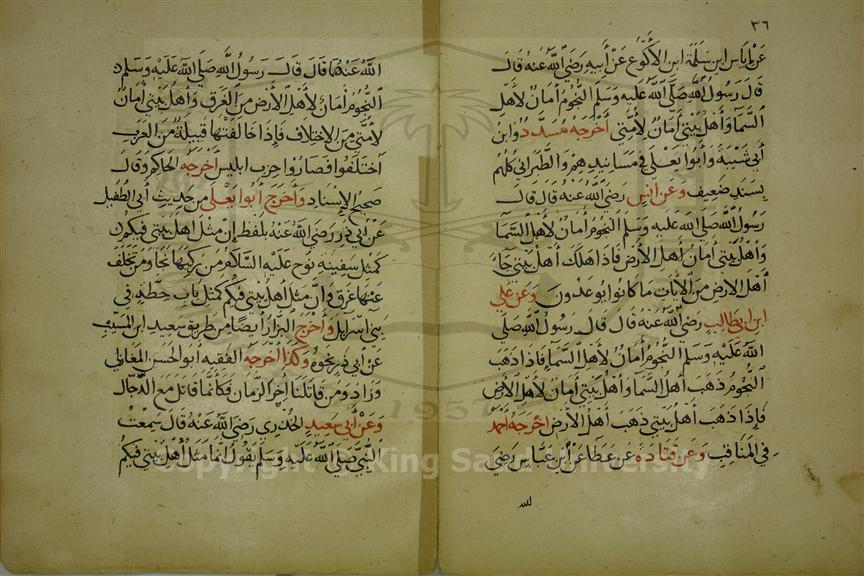 ٣٦
عن إياس ابن سلمة ابن الأكوع عن أبيه رضي الله عنه قال
قال رسول الله صلى الله عليه وسلم النجوم أمان لأهل
السما وأهل بيتي أمان لأمتي أخرجه مسدد وابن
أبي شيبة وأبوا يعلى في مسانيدهم والطبراني كلهم
بسند ضعيف وعن انس رضي الله عنه قال قال
رسول الله صلى الله عليه وسلم النجوم أمان لأهل السما
وأهل بيتي أمان أهل الأرض فإذا هلك أهل بيتي جا
أهل الارض من الأيات ما كانوا يوعدون وعن علي
ابن ابي طالب رضي الله عنه قال قال رسول الله صلى
الله عليه وسلم النجوم أمان لأهل السما فإذا ذهب
النجوم ذهب أهل السما وأهل بيتي أمان لأهل الأرض
فإذا ذهب أهل بيتي ذهب أهل الأرض اخرجه احمد
في المناقب وعن قتادة عن عطا عن ابن عباس رضي
لله
الله عنهما قال قال رسول الله صلى الله عليه وسلم
النجوم أمان لأهل الأرض من الغرق وأهل بيتي أمان
لأمتي من الإختلاف فإذا خالفتها قبيلة من العرب
اختلفوا فصاروا حزب ابليس أخرجه الحاكم وقال
صحيح الإسناد وأخرج أبوا يعلى من حديث أبي الطفيل
عن أبي ذر رضي الله عنه بلفظ إن مثل اهل بيتي فيكم
كمثل سفينة نوح عليه السلام من ركبها نجا ومن تخلف
عنها غرق وإن مثل اهل بيتي فيكم كمثل باب حطة في
بني اسرايل وأخرج البزار أيضا من طريق سعيد ابن المسيب
عن أبي ذر نحوه وكذا أخرجه الفقيه أبوا الحسن المغازلي
وزاد ومن قاتلنا أخر الزمان فكأنما قاتل مع الدجال
وعن أبي سعيد الخدري رضي الله عنه قال سمعت
النبي صلى الله عليه وسلم يقول إنما مثل أهل بيتي فيكم
1957
Copyright © King Saud University